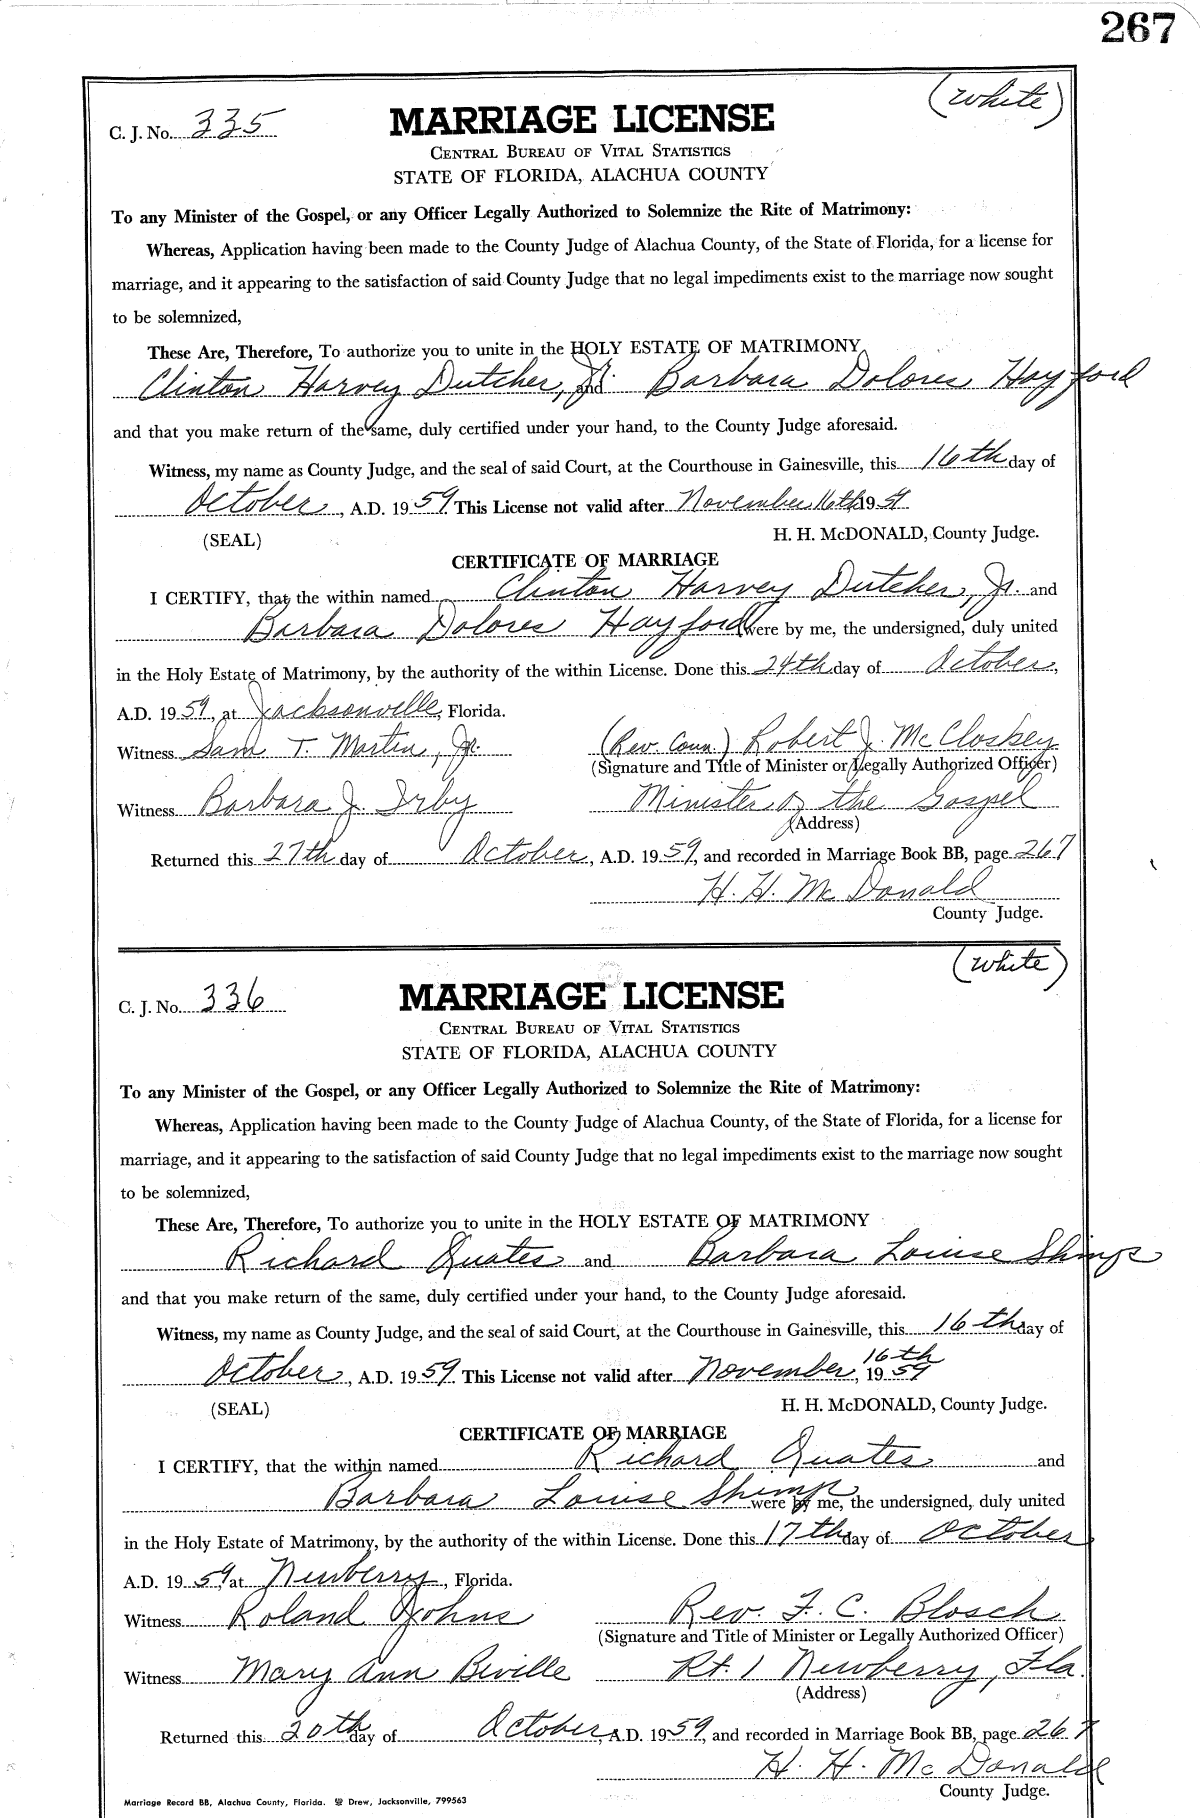 267
(White)
C. J. No. 335
MARRIAGE LICENSE
CENTRAL BUREAU OF VITAL STATISTICS
STATE OF FLORIDA, ALACHUA COUNTY
To any Minister of the Gospel, or any Officer Legally Authorized to Solemnize the Rite of Matrimony:
Whereas, Application having been made to the County Judge of Alachua County, of the State of Florida, for a license for
marriage, and it appearing to the satisfaction of said County Judge that no legal impediments exist to the marriage now sought
to be solemnized,
These Are, Therefore, To authorize you to unite in the HOLY ESTATE OF MATRIMONY
Clinton Harvey Dutcher, Jr. and Barbara Dolores Hayford
and that you make return of the same, duly certified under your hand, to the County Judge aforesaid.
Witness, my name as County Judge, and the seal of said Court, at the Courthouse in Gainesville, this 16th day of
October, A.D. 1959. This License not valid after November 16th 1959
(SEAL) H. H. McDONALD, County Judge.
CERTIFICATE OF MARRIAGE
I CERTIFY, that the within named Clinton Harvey Dutcher, Jr. and
Barbara Dolores Hayford were by me, the undersigned, duly united
in the Holy Estate of Matrimony, by the authority of the within License. Done this 24th day of October,
A.D. 1959, at Jacksonville, Florida.
Witness Sam T. Martin, Jr. (Rev. Coun.) Robert J. McCloskey
(Signature and Title of Minister or Legally Authorized Officer)
Witness Barbara J. Irby Minister of the Gospel
(Address)
Returned this 27th day of October, A.D. 1959, and recorded in Marriage Book BB, page 267
H. H. McDonald
County Judge.
(White)
C. J. No. 336
MARRIAGE LICENSE
CENTRAL BUREAU OF VITAL STATISTICS
STATE OF FLORIDA, ALACHUA COUNTY
To any Minister of the Gospel, or any Officer Legally Authorized to Solemnize the Rite of Matrimony:
Whereas, Application having been made to the County Judge of Alachua County, of the State of Florida, for a license for
marriage, and it appearing to the satisfaction of said County Judge that no legal impediments exist to the marriage now sought
to be solemnized,
These Are, Therefore, To authorize you to unite in the HOLY ESTATE OF MATRIMONY
Richard Quates and Barbara Louise Shimp
and that you make return of the same, duly certified under your hand, to the County Judge aforesaid.
Witness, my name as County Judge, and the seal of said Court, at the Courthouse in Gainesville, this 16th day of
October, A.D. 1959. This License not valid after November 16th, 1959
(SEAL) H. H. McDONALD, County Judge.
CERTIFICATE OF MARRIAGE
I CERTIFY, that the within named Richard Quates and
Barbara Louise Shimp were by me, the undersigned, duly united
in the Holy Estate of Matrimony, by the authority of the within License. Done this 17th day of October
A.D. 1959, at Newberry, Florida.
Witness Roland Johns Rev. F. C. Blosch
(Signature and Title of Minister or Legally Authorized Officer)
Witness Mary Ann Beville Rt. 1 Newberry, Fla.
(Address)
Returned this 20th day of October, A.D. 1959, and recorded in Marriage Book BB, page 267
H. H. McDonald
County Judge.
Marriage Record BB, Alachua County, Florida. Drew, Jacksonville, 799563